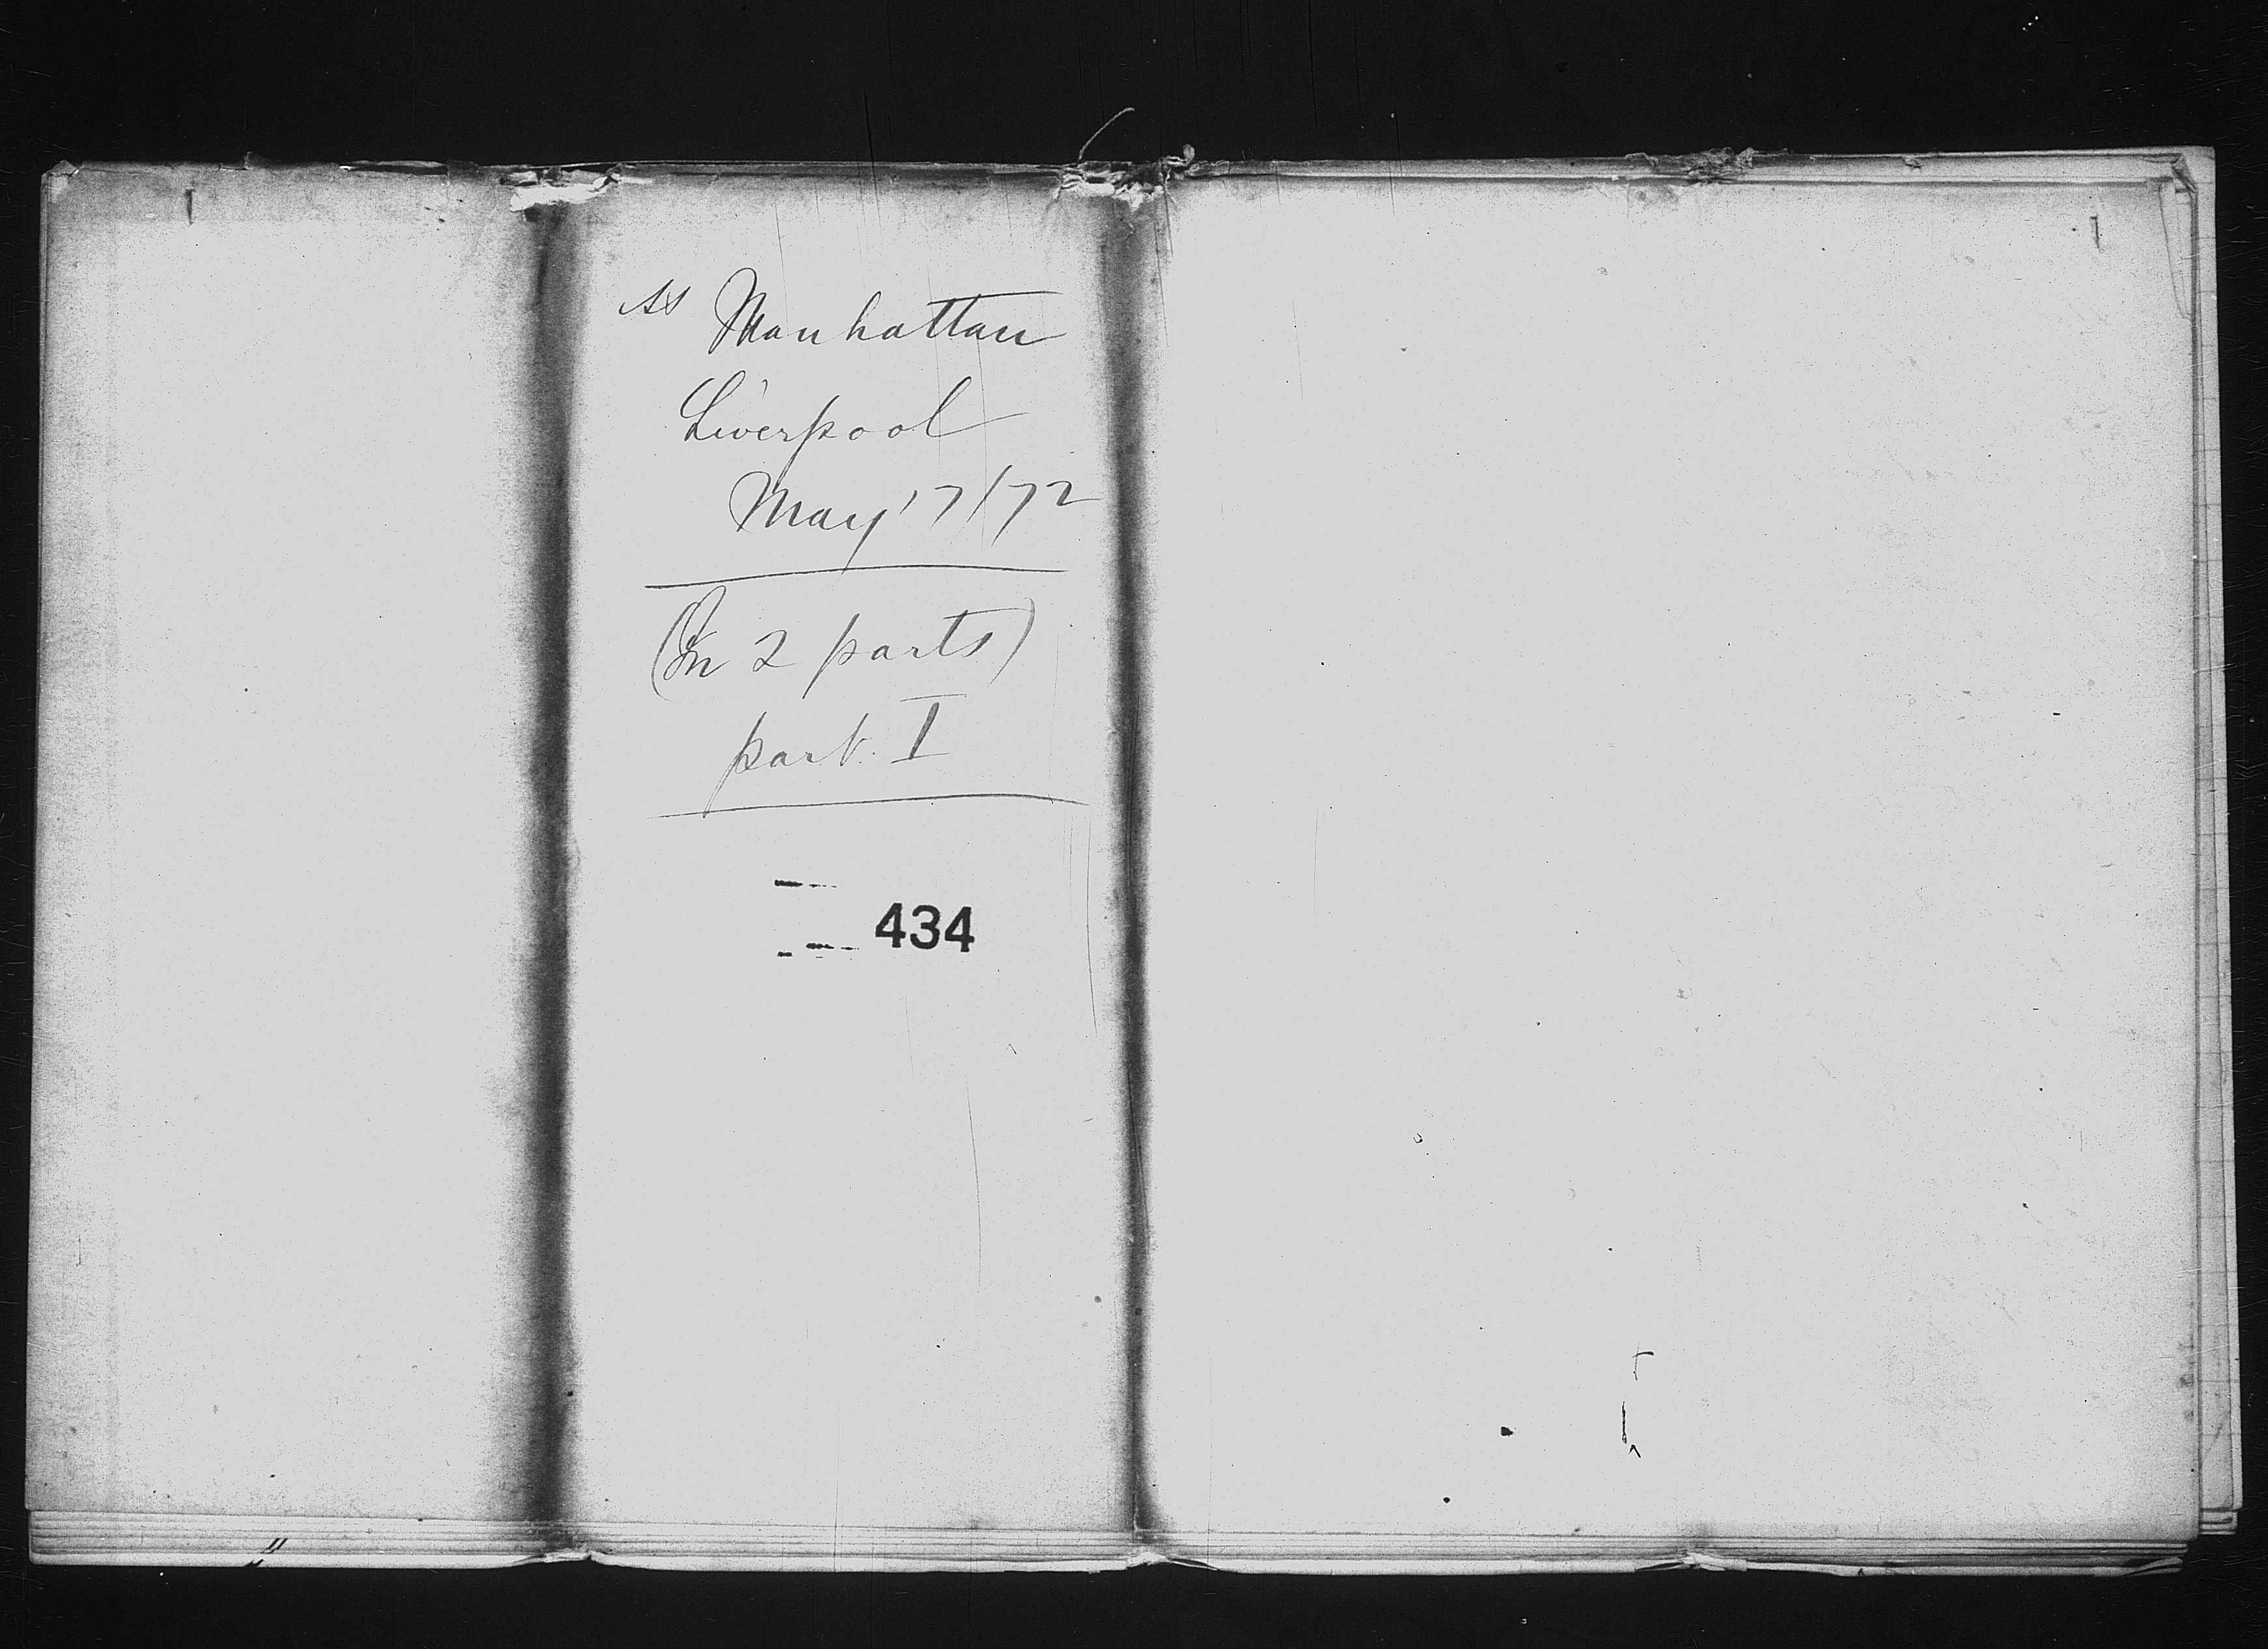 SS Manhattan
Liverpool
May 17/72
(In 2 parts)
part. I
434